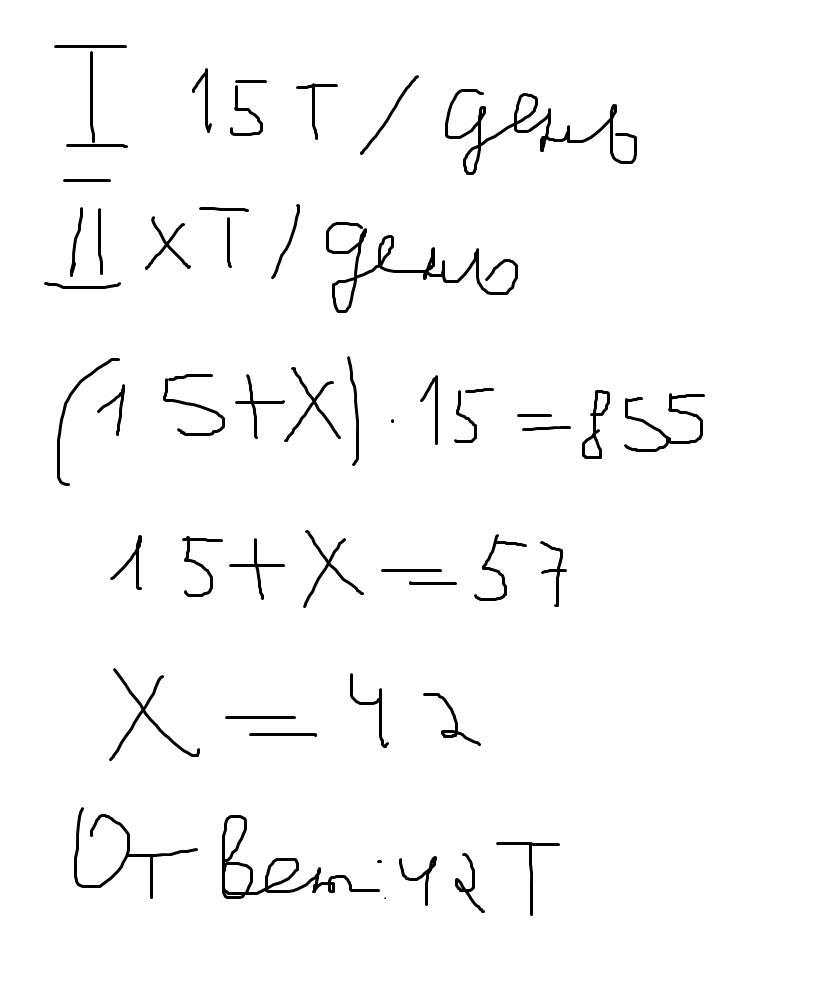 I 15 т / день
II х т / день
(15+х) · 15 = 855
15+х = 57
х = 42
Ответ: 42 т